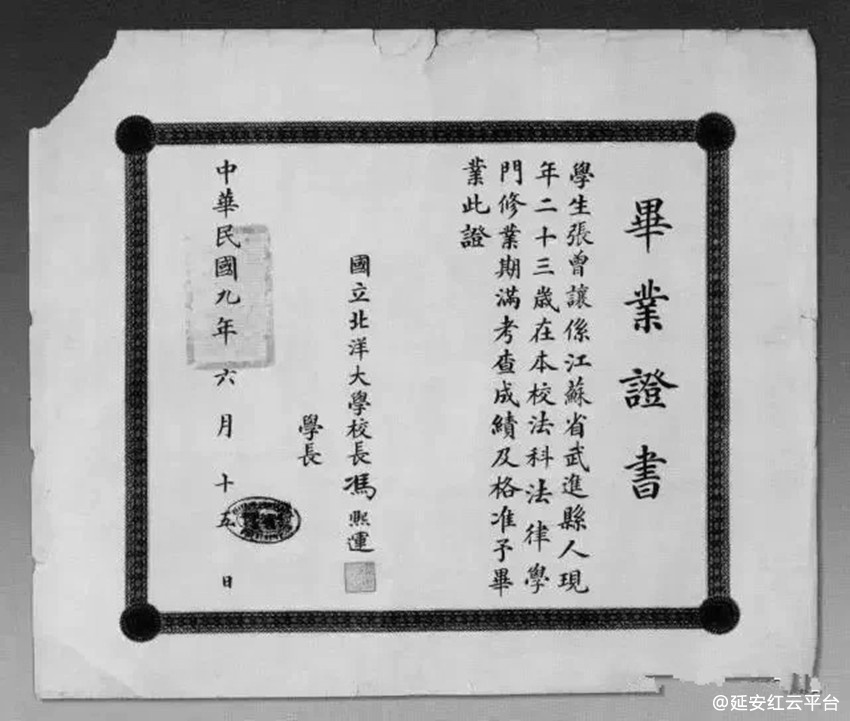 畢業證書
學生張曾讓係江蘇省武進縣人現
年二十三歲在本校法科法律學
門修業期滿考查成績及格准予畢
業此證
國立北洋大學校長馮熙運
學長
中華民國九年六月十五日
@延安红云平台